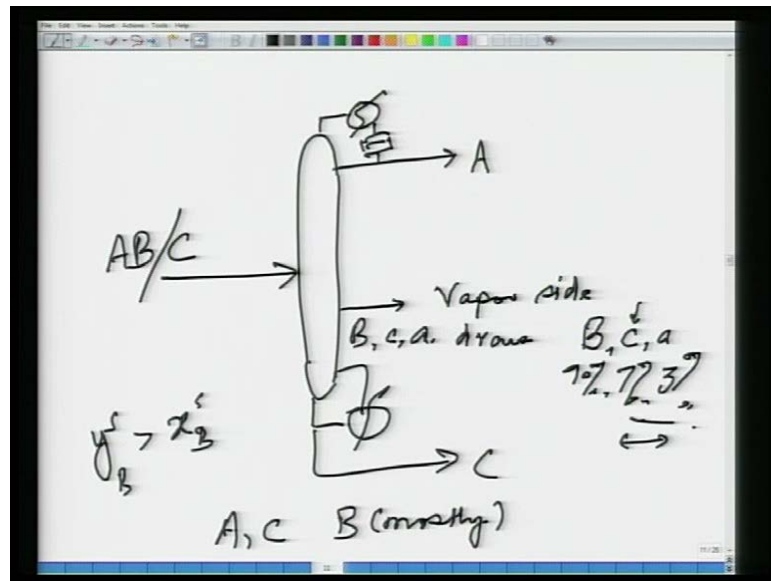 File Edit View Insert Actions Tools Help
A
AB/C
Vapor side
B, c, a. draw
B, c, a
90%, 7%, 3%
y^s_B > x^s_B
C
A, C B (mostly)
11/26